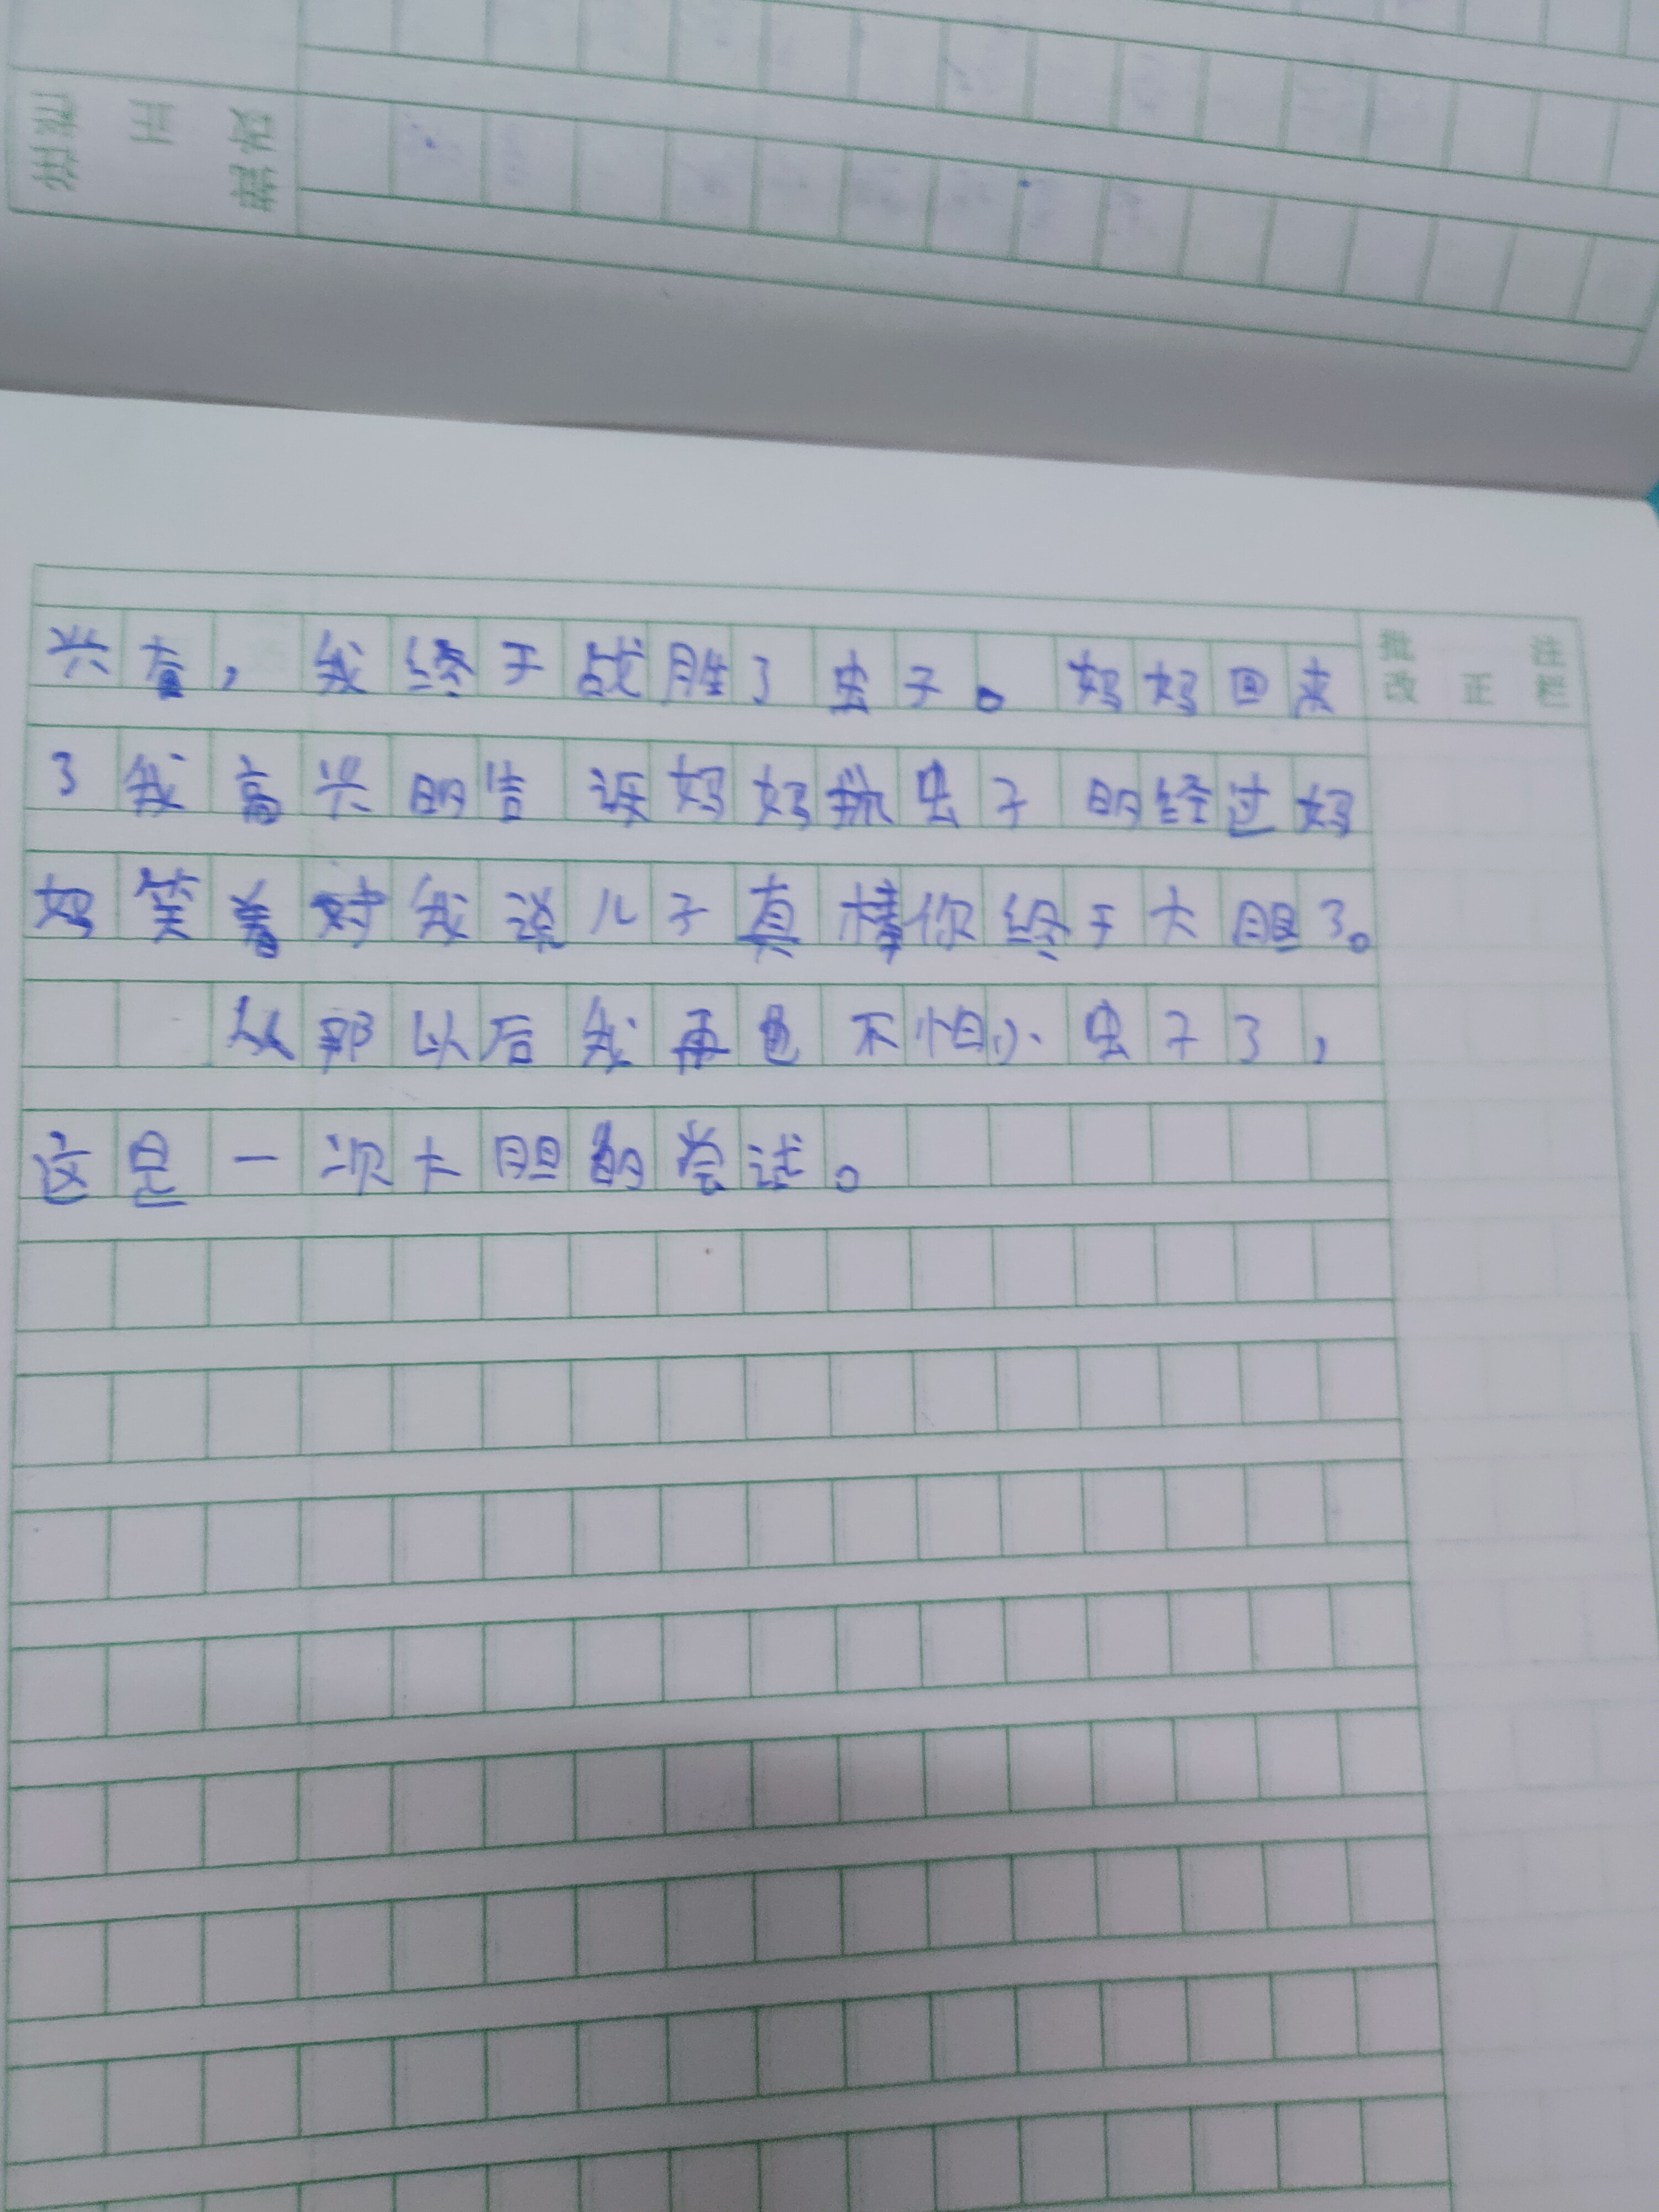 兴着，我终于战胜了虫子。妈妈回来
了我高兴的告诉妈妈抓虫子的经过妈
妈笑着对我说儿子真棒你终于大胆了。
从那以后我再也不怕小虫子了，
这是一次大胆的尝试。
批改 正 注栏